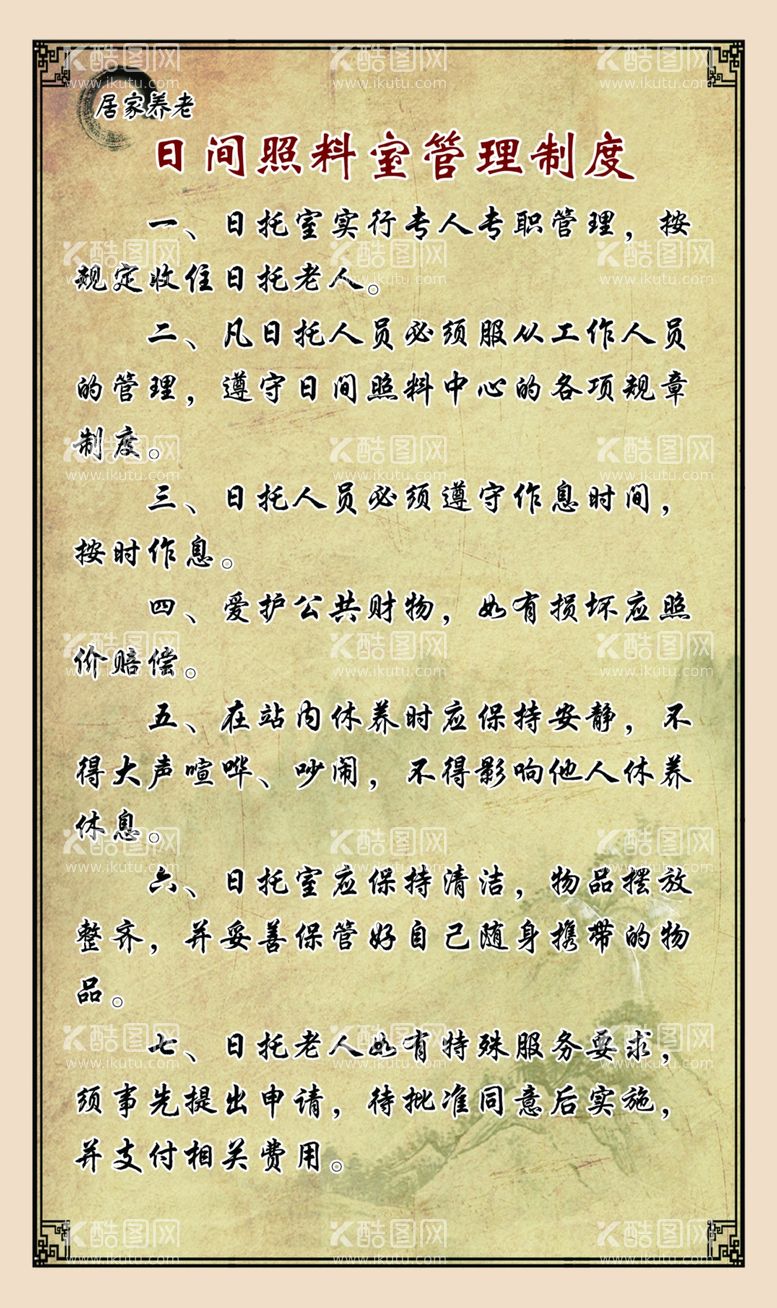 居家养老
日间照料室管理制度
一、日托室实行专人专职管理，按
规定收住日托老人。
二、凡日托人员必须服从工作人员
的管理，遵守日间照料中心的各项规章
制度。
三、日托人员必须遵守作息时间，
按时作息。
四、爱护公共财物，如有损坏应照
价赔偿。
五、在站内休养时应保持安静，不
得大声喧哗、吵闹，不得影响他人休养
休息。
六、日托室应保持清洁，物品摆放
整齐，并妥善保管好自己随身携带的物
品。
七、日托老人如有特殊服务要求，
须事先提出申请，待批准同意后实施，
并支付相关费用。
酷图网
www.ikutu.com